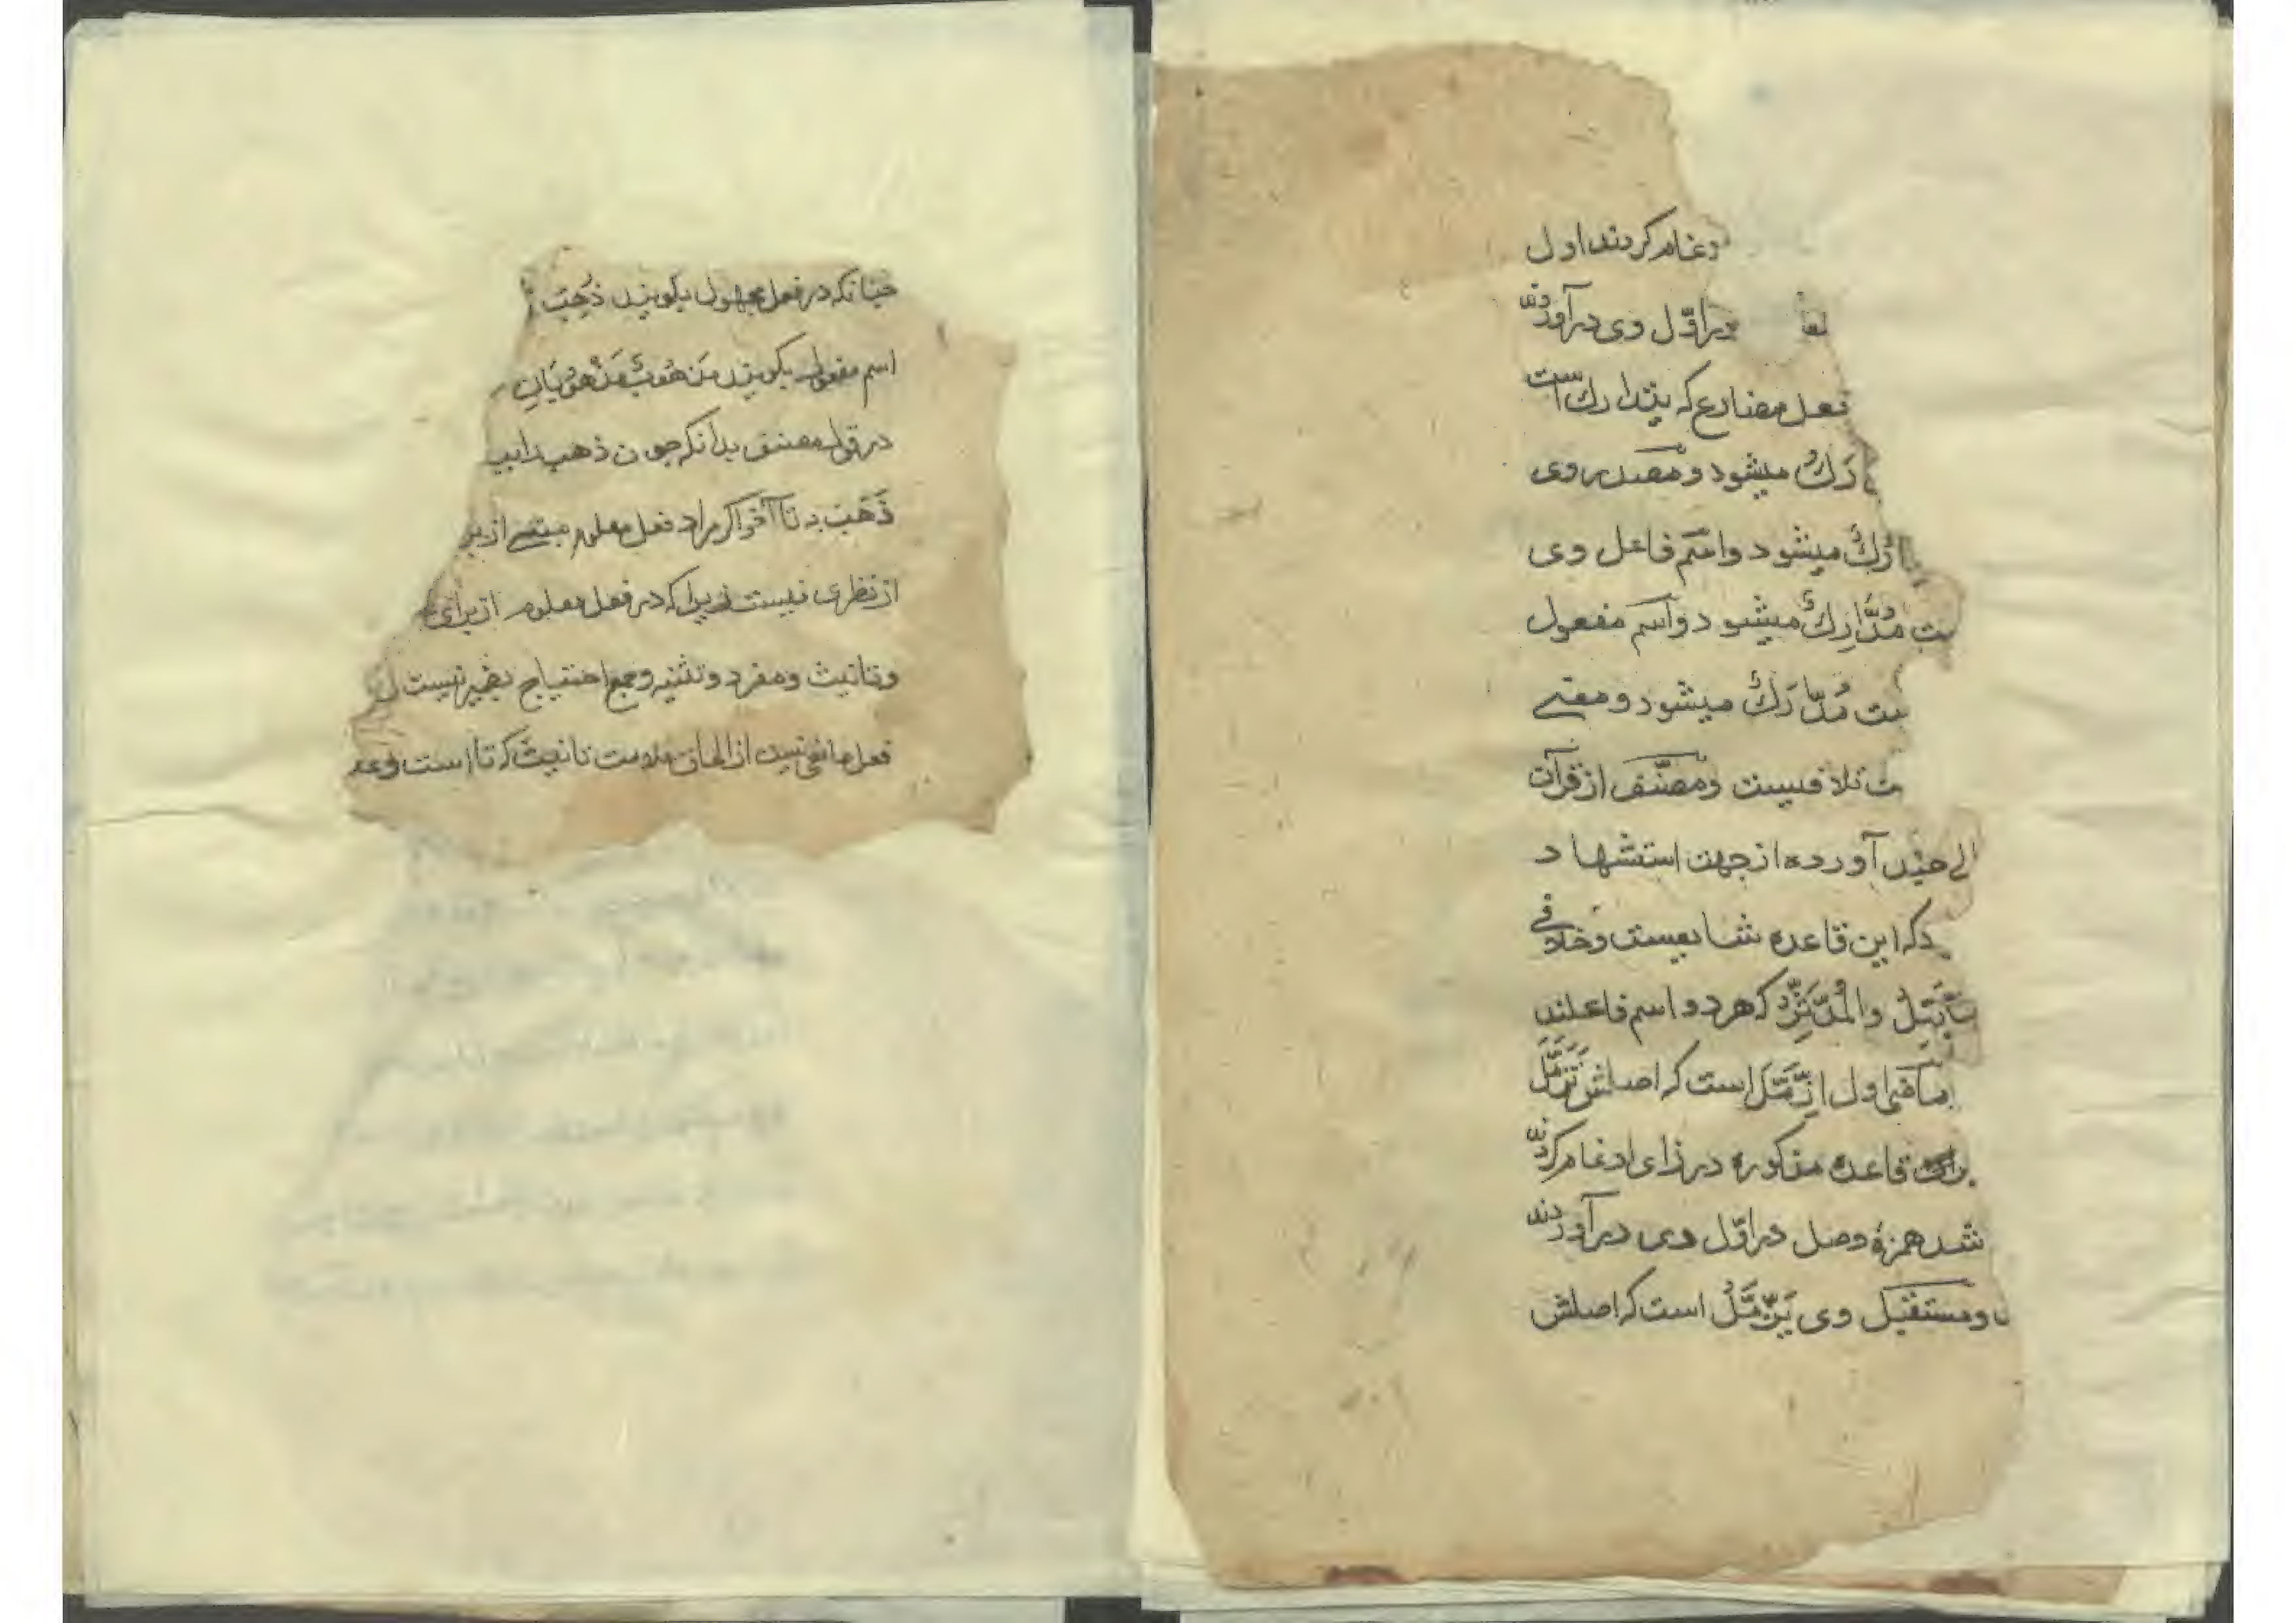 دغام کردند اول
در اوّل وی در آوردند
فعل مضارع که یتدارک است
دَرَکُ میشود و مصدر وی
ارُکٌ میشود و اسم فاعل وی
ست مُدَّارِکٌ میشود و اسم مفعول
ست مُدَّارَکٌ میشود و معنی
ت تلافیست و مصنّف از قرآن
لی چند آورده از جهت استشهاد
د که این قاعده شایعست و خلافی
والمُدَّثِّرُ که هر دو اسم فاعلند
ماضی اول اِزَّمَّلَ است که اصلش تَزَمَّلَ
قاعده مذکوره در زای ادغام کردند
شد همزهٔ وصل در اوّل وی در آوردند
و مستقبل وی یَزَّمَّلُ است که اصلش
چنانکه در فعل مجهول میکویند ذُهِبَ
اسم مفعول میکویند مَذهُوبٌ مَذْهُوبَانِ
در قول مصنف بدانکه چون ذهب را
ذَهَبَ به تا آخر اکر مراد فعل معلوم
از نظری نیست زیرا که در فعل معلوم از برای
و تانیث و مفرد و تثنیه و جمع احتیاج بغیر نیست
فعل مانعی نیست از الحاق علامت تانیث که تا است و